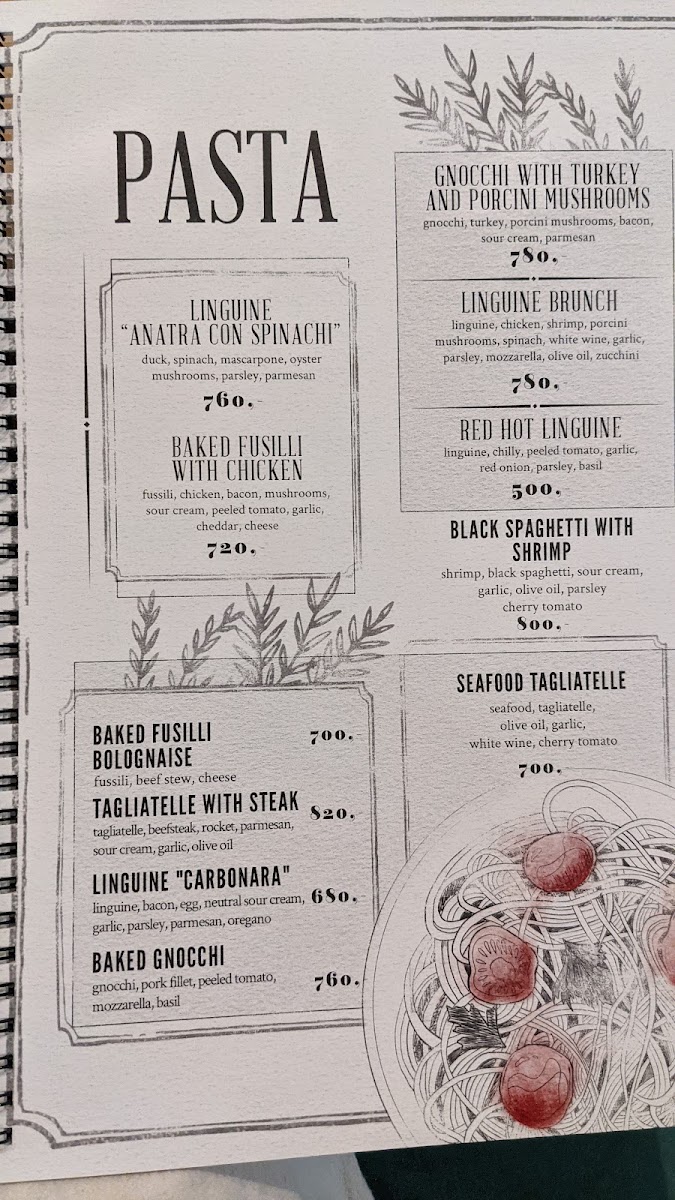 PASTA
LINGUINE
“ANATRA CON SPINACHI”
duck, spinach, mascarpone, oyster
mushrooms, parsley, parmesan
760.-
BAKED FUSILLI
WITH CHICKEN
fussili, chicken, bacon, mushrooms,
sour cream, peeled tomato, garlic,
cheddar, cheese
720.-
BAKED FUSILLI
BOLOGNAISE
700.-
fussili, beef stew, cheese
TAGLIATELLE WITH STEAK
820.-
tagliatelle, beefsteak, rocket, parmesan,
sour cream, garlic, olive oil
LINGUINE "CARBONARA"
linguine, bacon, egg, neutral sour cream,
680.-
garlic, parsley, parmesan, oregano
BAKED GNOCCHI
gnocchi, pork fillet, peeled tomato,
760.
mozzarella, basil
GNOCCHI WITH TURKEY
AND PORCINI MUSHROOMS
gnocchi, turkey, porcini mushrooms, bacon,
sour cream, parmesan
780.-
LINGUINE BRUNCH
linguine, chicken, shrimp, porcini
mushrooms, spinach, white wine, garlic,
parsley, mozzarella, olive oil, zucchini
780.-
RED HOT LINGUINE
linguine, chilly, peeled tomato, garlic,
red onion, parsley, basil
500.-
BLACK SPAGHETTI WITH
SHRIMP
shrimp, black spaghetti, sour cream,
garlic, olive oil, parsley
cherry tomato
800.-
SEAFOOD TAGLIATELLE
seafood, tagliatelle,
olive oil, garlic,
white wine, cherry tomato
700.-